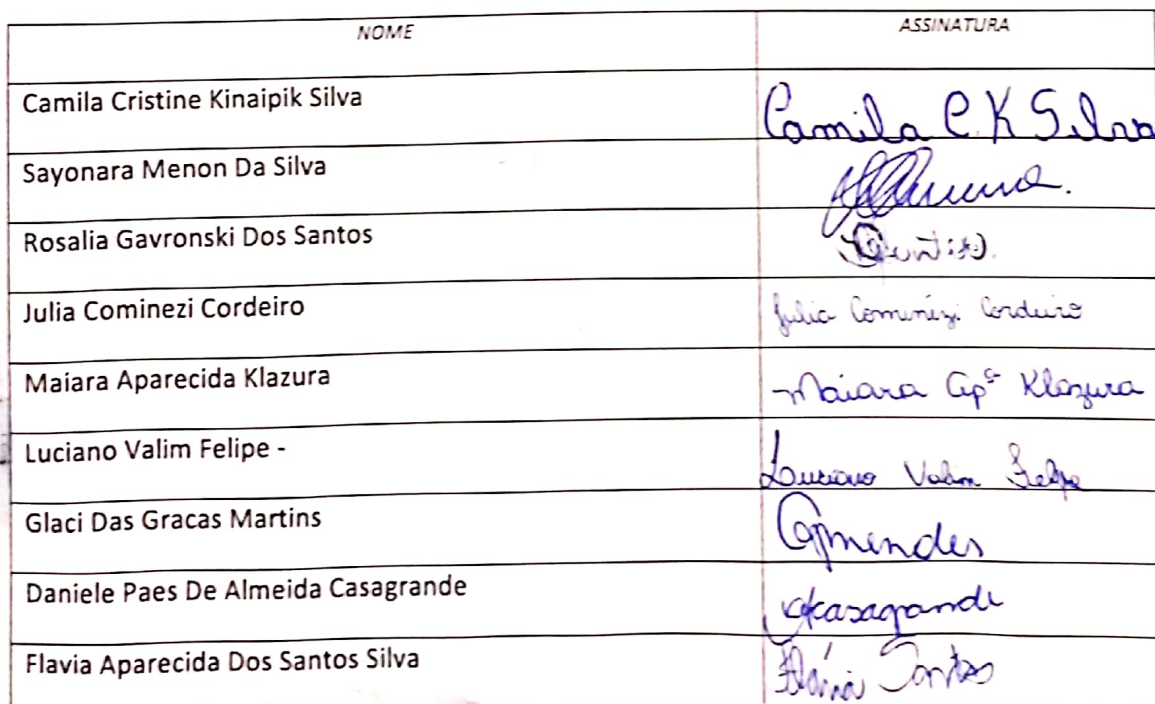 NOME ASSINATURA
Camila Cristine Kinaipik Silva Camila C. K Silva
Sayonara Menon Da Silva
Rosalia Gavronski Dos Santos
Julia Cominezi Cordeiro Julia Cominezi Cordeiro
Maiara Aparecida Klazura Maiara Apª Klazura
Luciano Valim Felipe - Luciano Valim Felipe
Glaci Das Gracas Martins Gmendes
Daniele Paes De Almeida Casagrande
Flavia Aparecida Dos Santos Silva Flávia Santos